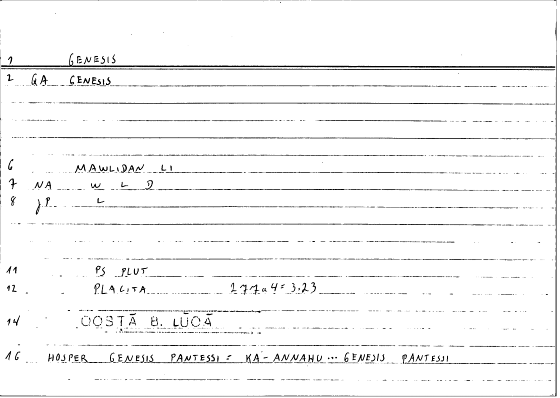 1 GENESIS
2 GA GENESIS
6 MAWLIDAN LI
7 NA W L D
8 jP L
11 PS PLUT
12 PLACITA 277a4 = 3,23
14 COSTĀ B. LŪQĀ
16 HOSPER GENESIS PANTESSI = KA-ANNAHU ... GENESIS PANTESSI